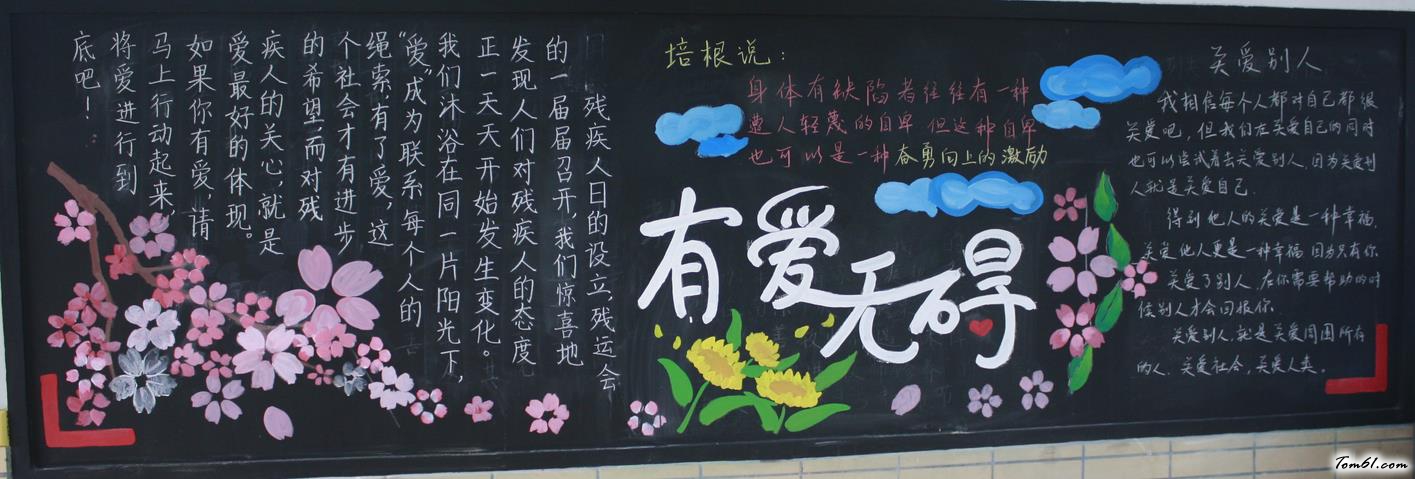 残疾人日的设立,残运会
的一届届召开,我们惊喜地
发现人们对残疾人的态度
正一天天开始发生变化。
我们沐浴在同一片阳光下,
“爱”成为联系每个人的
绳索有了爱,这
个社会才有进步
的希望而对残
疾人的关心,就是
爱最好的体现。
如果你有爱,请
马上行动起来,
将爱进行到
底吧!
培根说:
身体有缺陷者往往有一种
遭人轻蔑的自卑 但这种自卑
也可以是一种奋勇向上的激励
有爱无碍
关爱别人
我相信每个人都对自己都很
关爱吧,但我们在关爱自己的同时
也可以尝试着去关爱别人,因为关爱别
人就是关爱自己.
得到他人的关爱是一种幸福,
关爱他人更是一种幸福 因为只有你
关爱了别人,在你需要帮助的时
候别人才会回报你.
关爱别人,就是关爱周围所有
的人,关爱社会,关爱人类.
Tom61.com